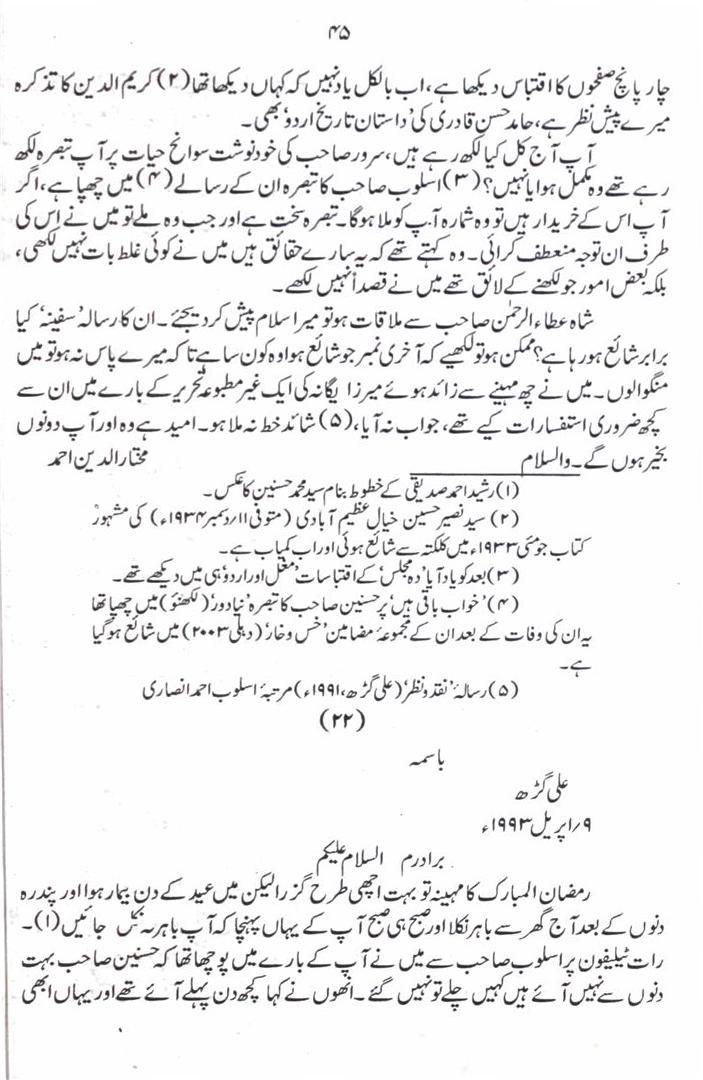 ۴۵
چار پانچ صفحوں کا اقتباس دیکھا ہے، اب بالکل یاد نہیں کہ کہاں دیکھا تھا (۲) کریم الدین کا تذکرہ
میرے پیش نظر ہے، حامد حسن قادری کی 'داستان تاریخ اردو' بھی۔
آپ آج کل کیا لکھ رہے ہیں، سرور صاحب کی خودنوشت سوانح حیات پر آپ تبصرہ لکھ
رہے تھے وہ مکمل ہوا یا نہیں؟ (۳) اسلوب صاحب کا تبصرہ ان کے رسالے (۴) میں چھپا ہے، اگر
آپ اس کے خریدار ہیں تو وہ شمارہ آپ کو ملا ہوگا۔ تبصرہ سخت ہے اور جب وہ ملے تو میں نے اس کی
طرف ان توجہ منعطف کرائی۔ وہ کہتے تھے کہ یہ سارے حقائق ہیں میں نے کوئی غلط بات نہیں لکھی،
بلکہ بعض امور جو لکھنے کے لائق تھے میں نے قصداً نہیں لکھے۔
شاہ عطاء الرحمٰن صاحب سے ملاقات ہو تو میرا سلام پیش کر دیجئے۔ ان کا رسالہ 'سفینہ' کیا
برابر شائع ہو رہا ہے؟ ممکن ہو تو لکھیے کہ آخری نمبر جو شائع ہوا وہ کون سا ہے تا کہ میرے پاس نہ ہو تو میں
منگوالوں۔ میں نے چھ مہینے سے زائد ہوئے میرزا یگانہ کی ایک غیر مطبوعہ تحریر کے بارے میں ان سے
کچھ ضروری استفسارات کیے تھے، جواب نہ آیا، (۵) شائد خط نہ ملا ہو۔ امید ہے وہ اور آپ دونوں
بخیر ہوں گے۔ والسلام مختار الدین احمد
(۱) رشید احمد صدیقی کے خطوط بنام سید محمد حسنین کا عکس۔
(۲) سید نصیر حسین خیال عظیم آبادی (متوفی ۱۱/دسمبر ۱۹۳۴ء) کی مشہور
کتاب جو مئی ۱۹۳۳ء میں کلکتہ سے شائع ہوئی اور اب کمیاب ہے۔
(۳) بعد کو یاد آیا 'دہ مجلس' کے اقتباسات 'مغل اور اردو' ہی میں دیکھے تھے۔
(۴) 'خواب باقی ہیں' پر حسنین صاحب کا تبصرہ 'نیا دور' (لکھنؤ) میں چھپا تھا
یہ ان کی وفات کے بعد ان کے مجموعۂ مضامین 'خس و خار' (دہلی ۲۰۰۳) میں شائع ہو گیا
ہے۔
(۵) رسالۂ 'نقد و نظر' (علی گڑھ، ۱۹۹۱ء) مرتبۂ اسلوب احمد انصاری
(۲۲)
باسمہ
علی گڑھ
۹/اپریل ۱۹۹۳ء
برادرم السلام علیکم
رمضان المبارک کا مہینہ تو بہت اچھی طرح گزرا لیکن میں عید کے دن بیمار ہوا اور پندرہ
دنوں کے بعد آج گھر سے باہر نکلا اور صبح ہی صبح آپ کے یہاں پہنچا کہ آپ باہر نہ نکل جائیں (۱)۔
رات ٹیلیفون پر اسلوب صاحب سے میں نے آپ کے بارے میں پوچھا تھا کہ حسنین صاحب بہت
دنوں سے نہیں آئے ہیں کہیں چلے تو نہیں گئے۔ انھوں نے کہا کچھ دن پہلے آئے تھے اور یہاں ابھی